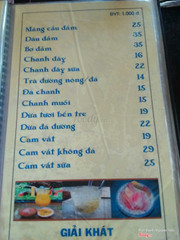 ĐVT: 1.000 đ
Mãng cầu dầm 25
Dâu dầm 35
Bơ dầm 35
Chanh dây 16
Chanh dây sữa 22
Trà đường nóng/đá 14
Đá chanh 15
Chanh muối 15
Dừa tươi bến tre 19
Dừa đá đường 22
Cam vắt 19
Cam vắt không đá 29
Cam vắt sữa 25
GIẢI KHÁT